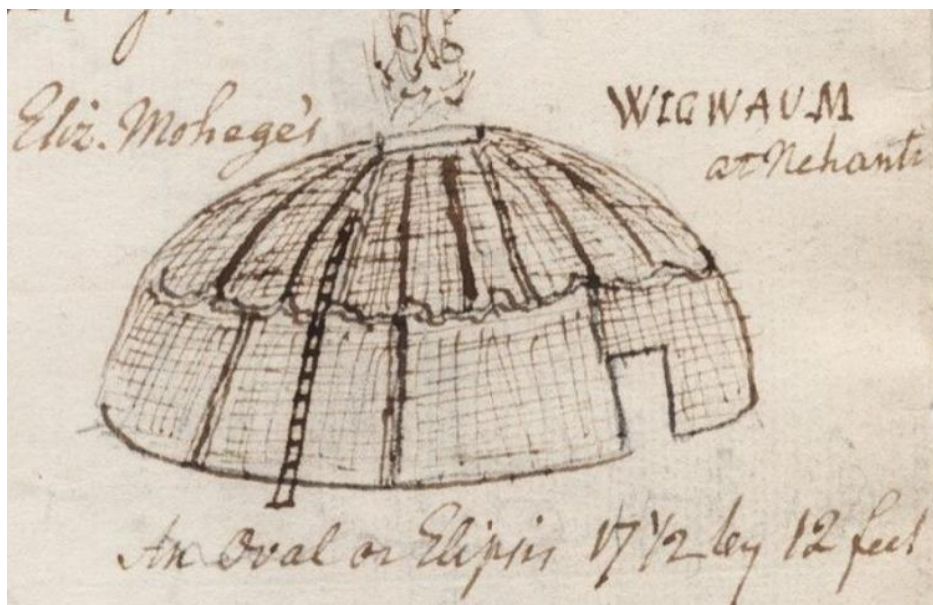 Eliz. Mohege's
WIGWAUM
at Nehanti
An Oval or Elipsis 17 1/2 by 12 feet